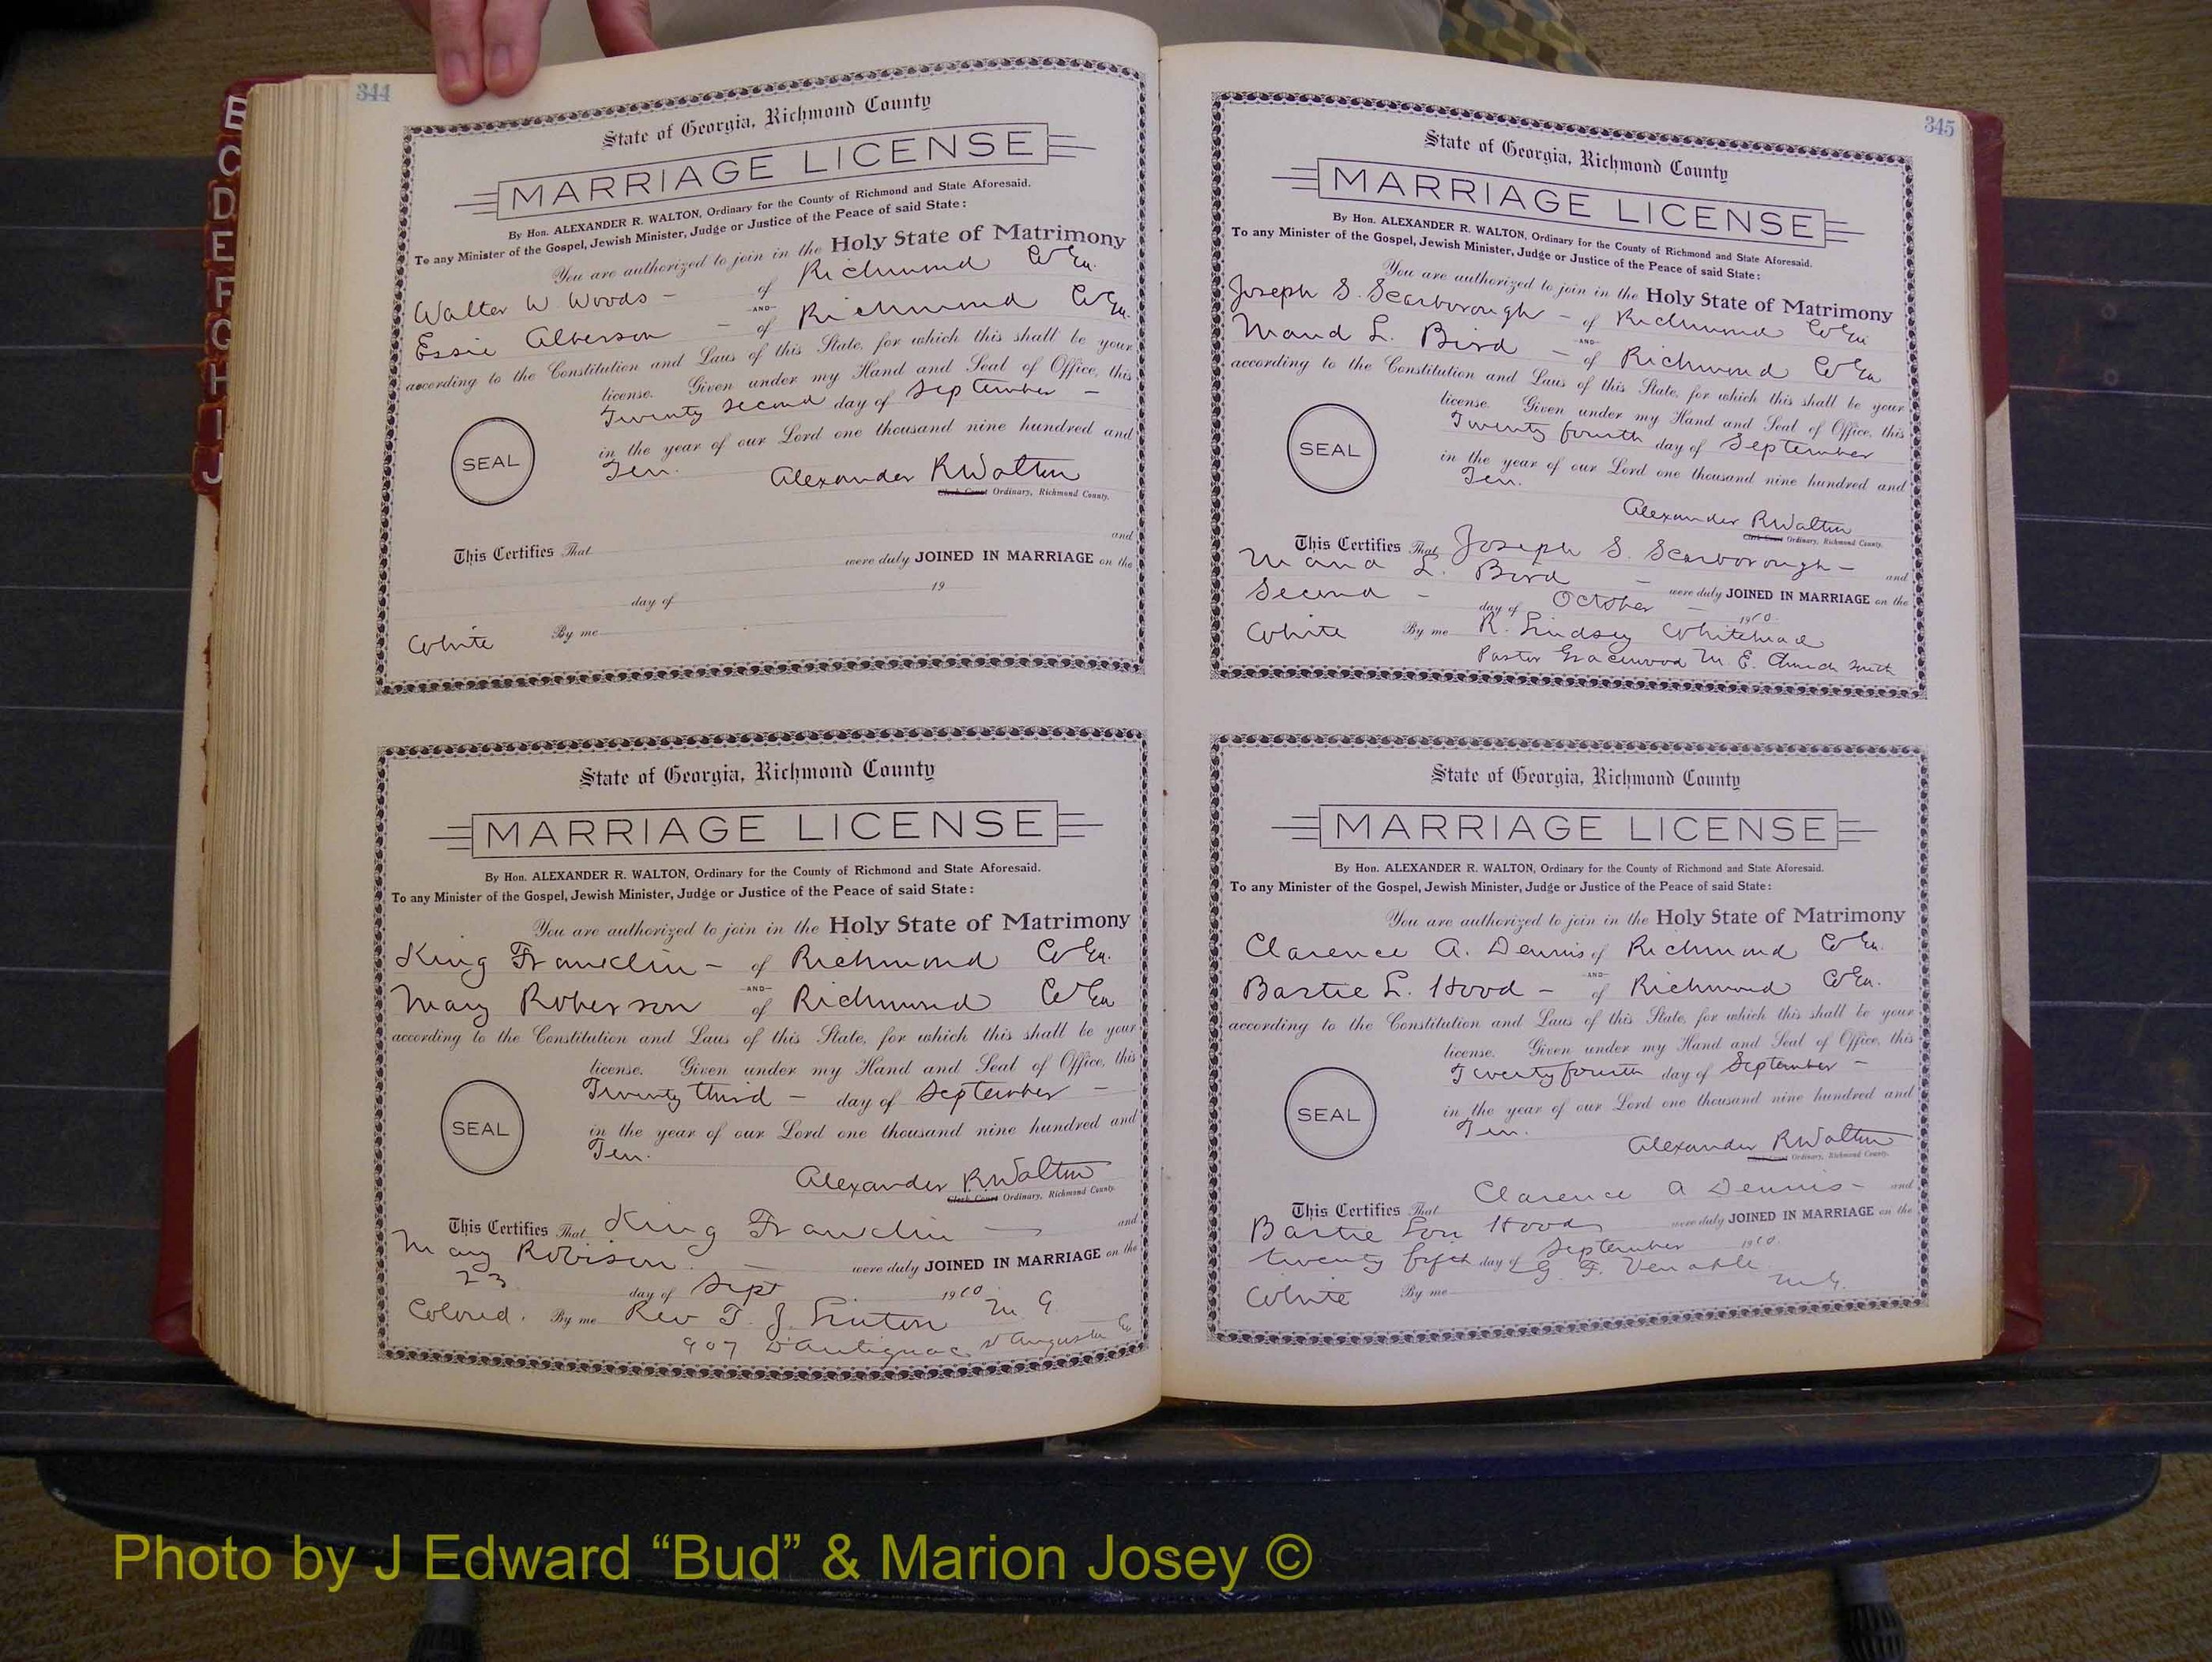 B
C
D
E
F
G
H
I
J
344
State of Georgia, Richmond County
MARRIAGE LICENSE
By Hon. ALEXANDER R. WALTON, Ordinary for the County of Richmond and State Aforesaid.
To any Minister of the Gospel, Jewish Minister, Judge or Justice of the Peace of said State:
You are authorized to join in the Holy State of Matrimony
Walter W Woods - of Richmond Co Ga.
-AND-
Essie Alberson - of Richmond Co Ga.
according to the Constitution and Laws of this State, for which this shall be your
license. Given under my Hand and Seal of Office, this
Twenty second day of September -
in the year of our Lord one thousand nine hundred and
Ten.
SEAL
Alexander R Walton
Clerk Court Ordinary, Richmond County.
This Certifies That and
were duly JOINED IN MARRIAGE on the
day of 19
White By me
State of Georgia, Richmond County
MARRIAGE LICENSE
By Hon. ALEXANDER R. WALTON, Ordinary for the County of Richmond and State Aforesaid.
To any Minister of the Gospel, Jewish Minister, Judge or Justice of the Peace of said State:
You are authorized to join in the Holy State of Matrimony
King Franklin - of Richmond Co Ga.
-AND-
Mary Roberson of Richmond Co Ga
according to the Constitution and Laws of this State, for which this shall be your
license. Given under my Hand and Seal of Office, this
Twenty third - day of September -
in the year of our Lord one thousand nine hundred and
Ten.
SEAL
Alexander R. Walton
Clerk Court Ordinary, Richmond County.
This Certifies That King Franklin - and
Mary Robison. - were duly JOINED IN MARRIAGE on the
23 day of Sept 1910
Colored. By me Rev T. J. Linton M. G.
907 D'Antignac st Augusta Ga
345
State of Georgia, Richmond County
MARRIAGE LICENSE
By Hon. ALEXANDER R. WALTON, Ordinary for the County of Richmond and State Aforesaid.
To any Minister of the Gospel, Jewish Minister, Judge or Justice of the Peace of said State:
You are authorized to join in the Holy State of Matrimony
Joseph S. Scarborough - of Richmond Co Ga
-AND-
Maud L. Bird - of Richmond Co Ga
according to the Constitution and Laws of this State, for which this shall be your
license. Given under my Hand and Seal of Office, this
Twenty fourth day of September
in the year of our Lord one thousand nine hundred and
Ten.
SEAL
Alexander R Walton
Clerk Court Ordinary, Richmond County.
This Certifies That Joseph S. Scarborough - and
Maud L. Bird - were duly JOINED IN MARRIAGE on the
Second - day of October - 1910.
White By me R. Lindsey Whitehead
Pastor Gracewood M. E. Church South
State of Georgia, Richmond County
MARRIAGE LICENSE
By Hon. ALEXANDER R. WALTON, Ordinary for the County of Richmond and State Aforesaid.
To any Minister of the Gospel, Jewish Minister, Judge or Justice of the Peace of said State:
You are authorized to join in the Holy State of Matrimony
Clarence A. Dennis of Richmond Co Ga.
-AND-
Bartie L. Hood - of Richmond Co Ga.
according to the Constitution and Laws of this State, for which this shall be your
license. Given under my Hand and Seal of Office, this
Twenty fourth day of September -
in the year of our Lord one thousand nine hundred and
Ten.
SEAL
Alexander R Walton
Clerk Court Ordinary, Richmond County.
This Certifies That Clarence A Dennis - and
Bartie Lou Hood were duly JOINED IN MARRIAGE on the
twenty fifth day of September 1910.
White By me G. F. Venable M.G.
Photo by J Edward “Bud” & Marion Josey ©